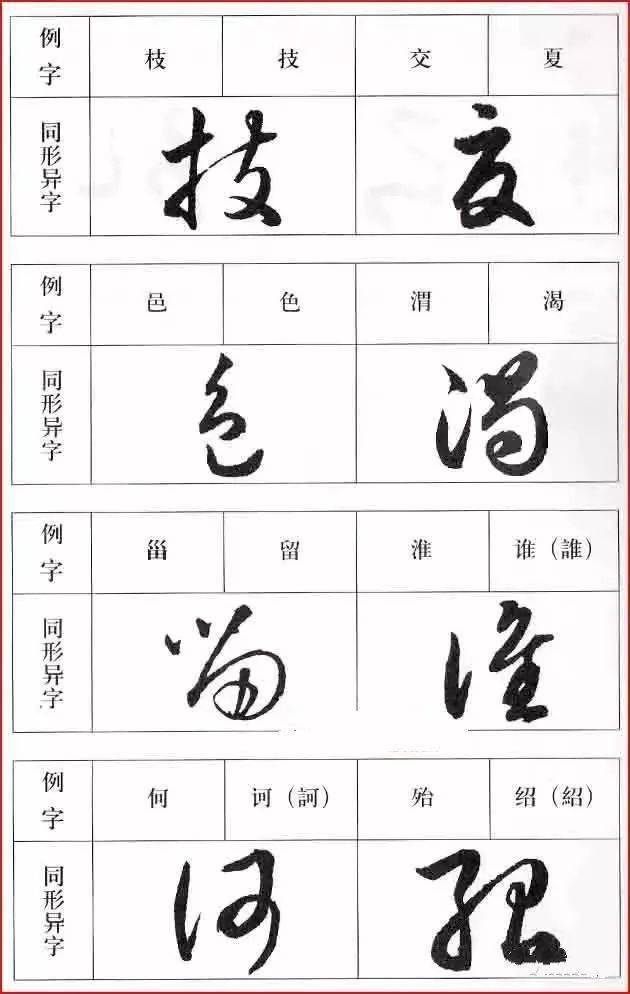 例字 枝 技 交 夏
同形异字
例字 邑 色 渭 渴
同形异字
例字 甾 留 淮 谁（誰）
同形异字
例字 何 诃（訶） 殆 绍（紹）
同形异字